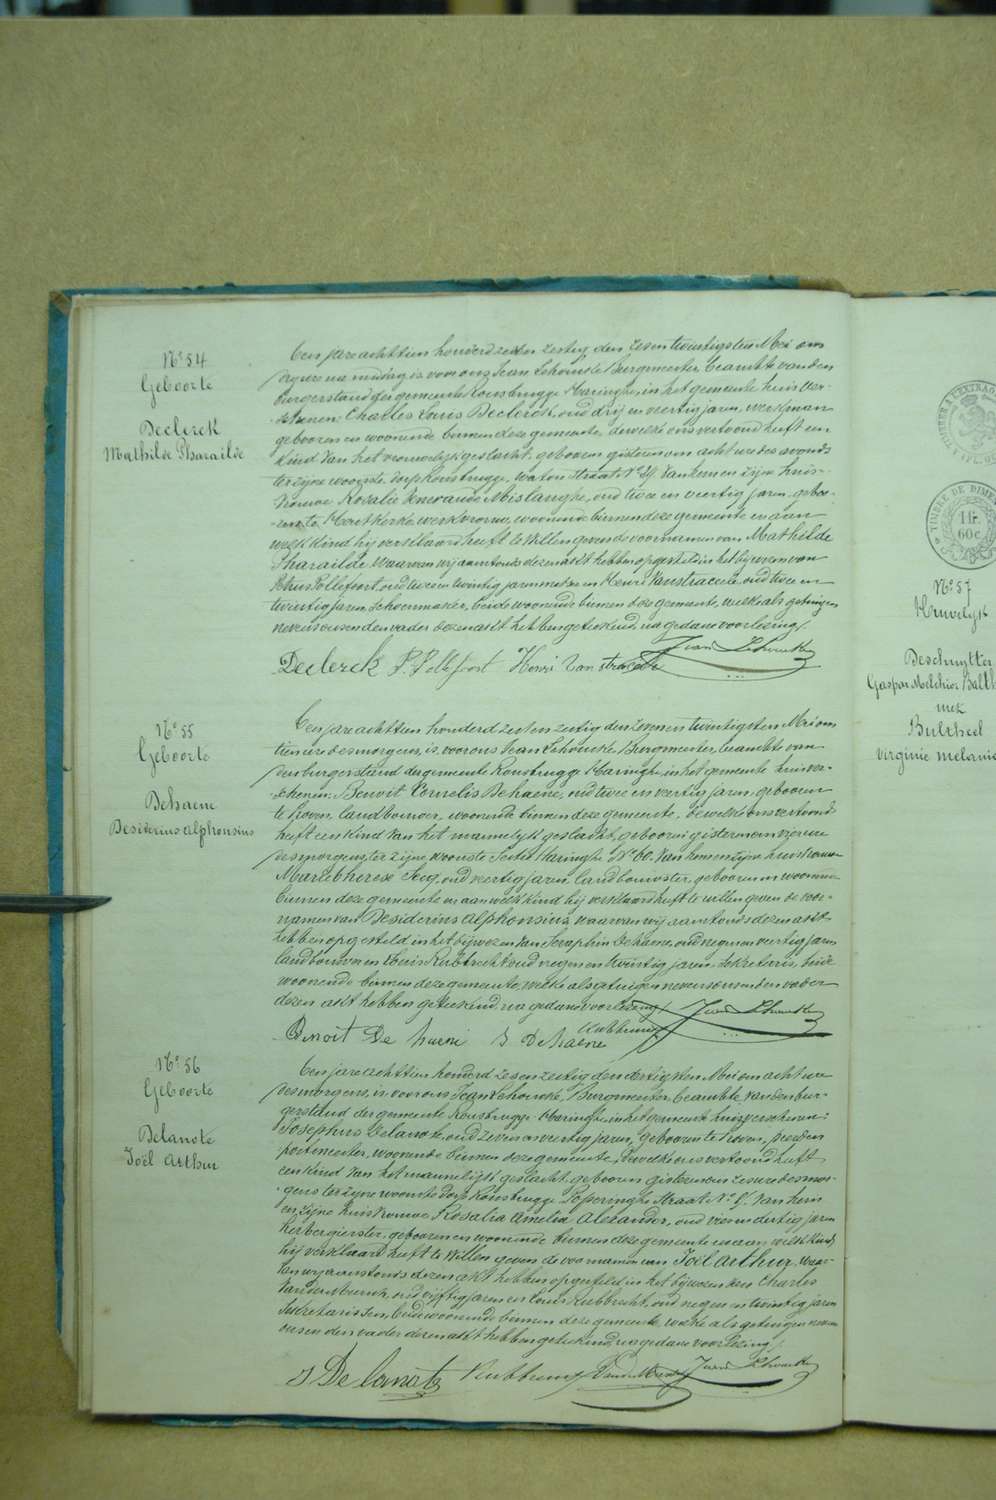 N° 54
Geboorte
Declerck
Mathilde Pharailde
Een jare achttien honderd zes en zestig den zesentwintigsten Mei om
ure na middag is voor ons Jean Lehoucke Burgmeester, beambte van den
burgerstand der gemeente Rousbrugge Haringhe, in het gemeente huis ver-
schenen: Charles Louis Declerck, oud drij en veertig jaren, werkman
gebooren en woonende binnen deze gemeente, dewelke ons vertoond heeft een
kind van het vrouwelijk geslacht, gebooren gisteren om acht ure des avonds
ter zijne woonste dorp Rousbrugge, Waton straat N° van hem en zijne huis-
vrouwe Rosalie Mislanghe, oud twee en veertig jaren, geboo-
ren te werkvrouw, woonende binnen deze gemeente en aan
welk kind hij verklaard heeft te willen geven de voornamen van Mathilde
Pharailde waarvan wij aanstonds dezen akt hebben opgesteld in het bijwezen van
Pollefoort, oud twee en twintig jaren en Henri Vanstraceele oud twee en
twintig jaren, schoenmaker, beide woonende binnen deze gemeente, welke als getuigen
nevens ons en den vader dezen akt hebben geteekend, na gedane voorlezing.
Declerck P. Pollefoort Henri Van straceele Jean Lehoucke
N° 55
Geboorte
Dehaene
Desiderius Alphonsius
Een jare achttien honderd zes en zestig den zeven en twintigsten Mei om
tien ure des morgens, is voor ons Jean Lehoucke Burgmeester, beambte van
den burgerstand der gemeente Rousbrugge Haringhe in het gemeente huis ver-
schenen: Benoit Cornelis Dehaene, oud twee en veertig jaren, gebooren
te Proven, landbouwer, woonende binnen deze gemeente, dewelke ons vertoond
heeft een kind van het mannelijk geslacht, gebooren gisteren om vier ure
des morgens, ter zijne woonste Sectie Haringhe N° 60. van hem en zijne huisvrouwe
Marie Therese oud veertig jaren, landbouwster, gebooren en woonende
binnen deze gemeente en aan welk kind hij verklaard heeft te willen geven de voor-
namen van Desiderius Alphonsius, waarvan wij aanstonds dezen akt
hebben opgesteld in het bijwezen van Seraphin Dehaene, oud negen en veertig jaren
landbouwer en Louis Rubbrecht oud negen en twintig jaren, sekretaris, beide
woonende binnen deze gemeente, welk als getuigen nevens ons en den vader
dezen akt hebben geteekend, na gedane voorlezing.
Benoit De haene S Dehaene Rubbrecht Jean Lehoucke
N° 56
Geboorte
Delanote
Joël Arthur
Een jare achttien honderd zes en zestig den dertigsten Mei om acht ure
des morgens, is voor ons Jean Lehoucke, Burgmeester, beambte van den bur-
gerstand der gemeente Rousbrugge Haringhe, in het gemeente huis verschenen:
Josephus Delanote, oud zeven en veertig jaren, gebooren te Proven,
postmeester, woonende binnen deze gemeente, dewelke ons vertoond heeft
een kind van het mannelijk geslacht, gebooren gisteren om zes ure des mor-
gens ter zijne woonste dorp Rousbrugge Poperinghe Straate N° van hem
en zijne huisvrouwe Rosalia Amelia Alexander, oud vier en dertig jaren
herbergierster, gebooren en woonende binnen deze gemeente en aan welk kind
hij verklaart heeft te willen geven de voornamen van Joël Arthur, waar-
van wij aanstonds dezen akt hebben opgesteld in het bijwezen van Charles
Vandermeersch, oud vijftig jaren en Louis Rubbrecht, oud negen en twintig jaren
sekretarissen, beide woonende binnen deze gemeente, welke als getuigen nevens
ons en den vader dezen akt hebben geteekend, na gedane voorlezing.
J Delanote Rubbrecht Jean Lehoucke
TIMBRE DE DIME
1 fr.
60 c
N° 57
Huwelijk
Deschuytter
Gaspar Melchior Balth
met
Bulcheel
Virginie Melanie